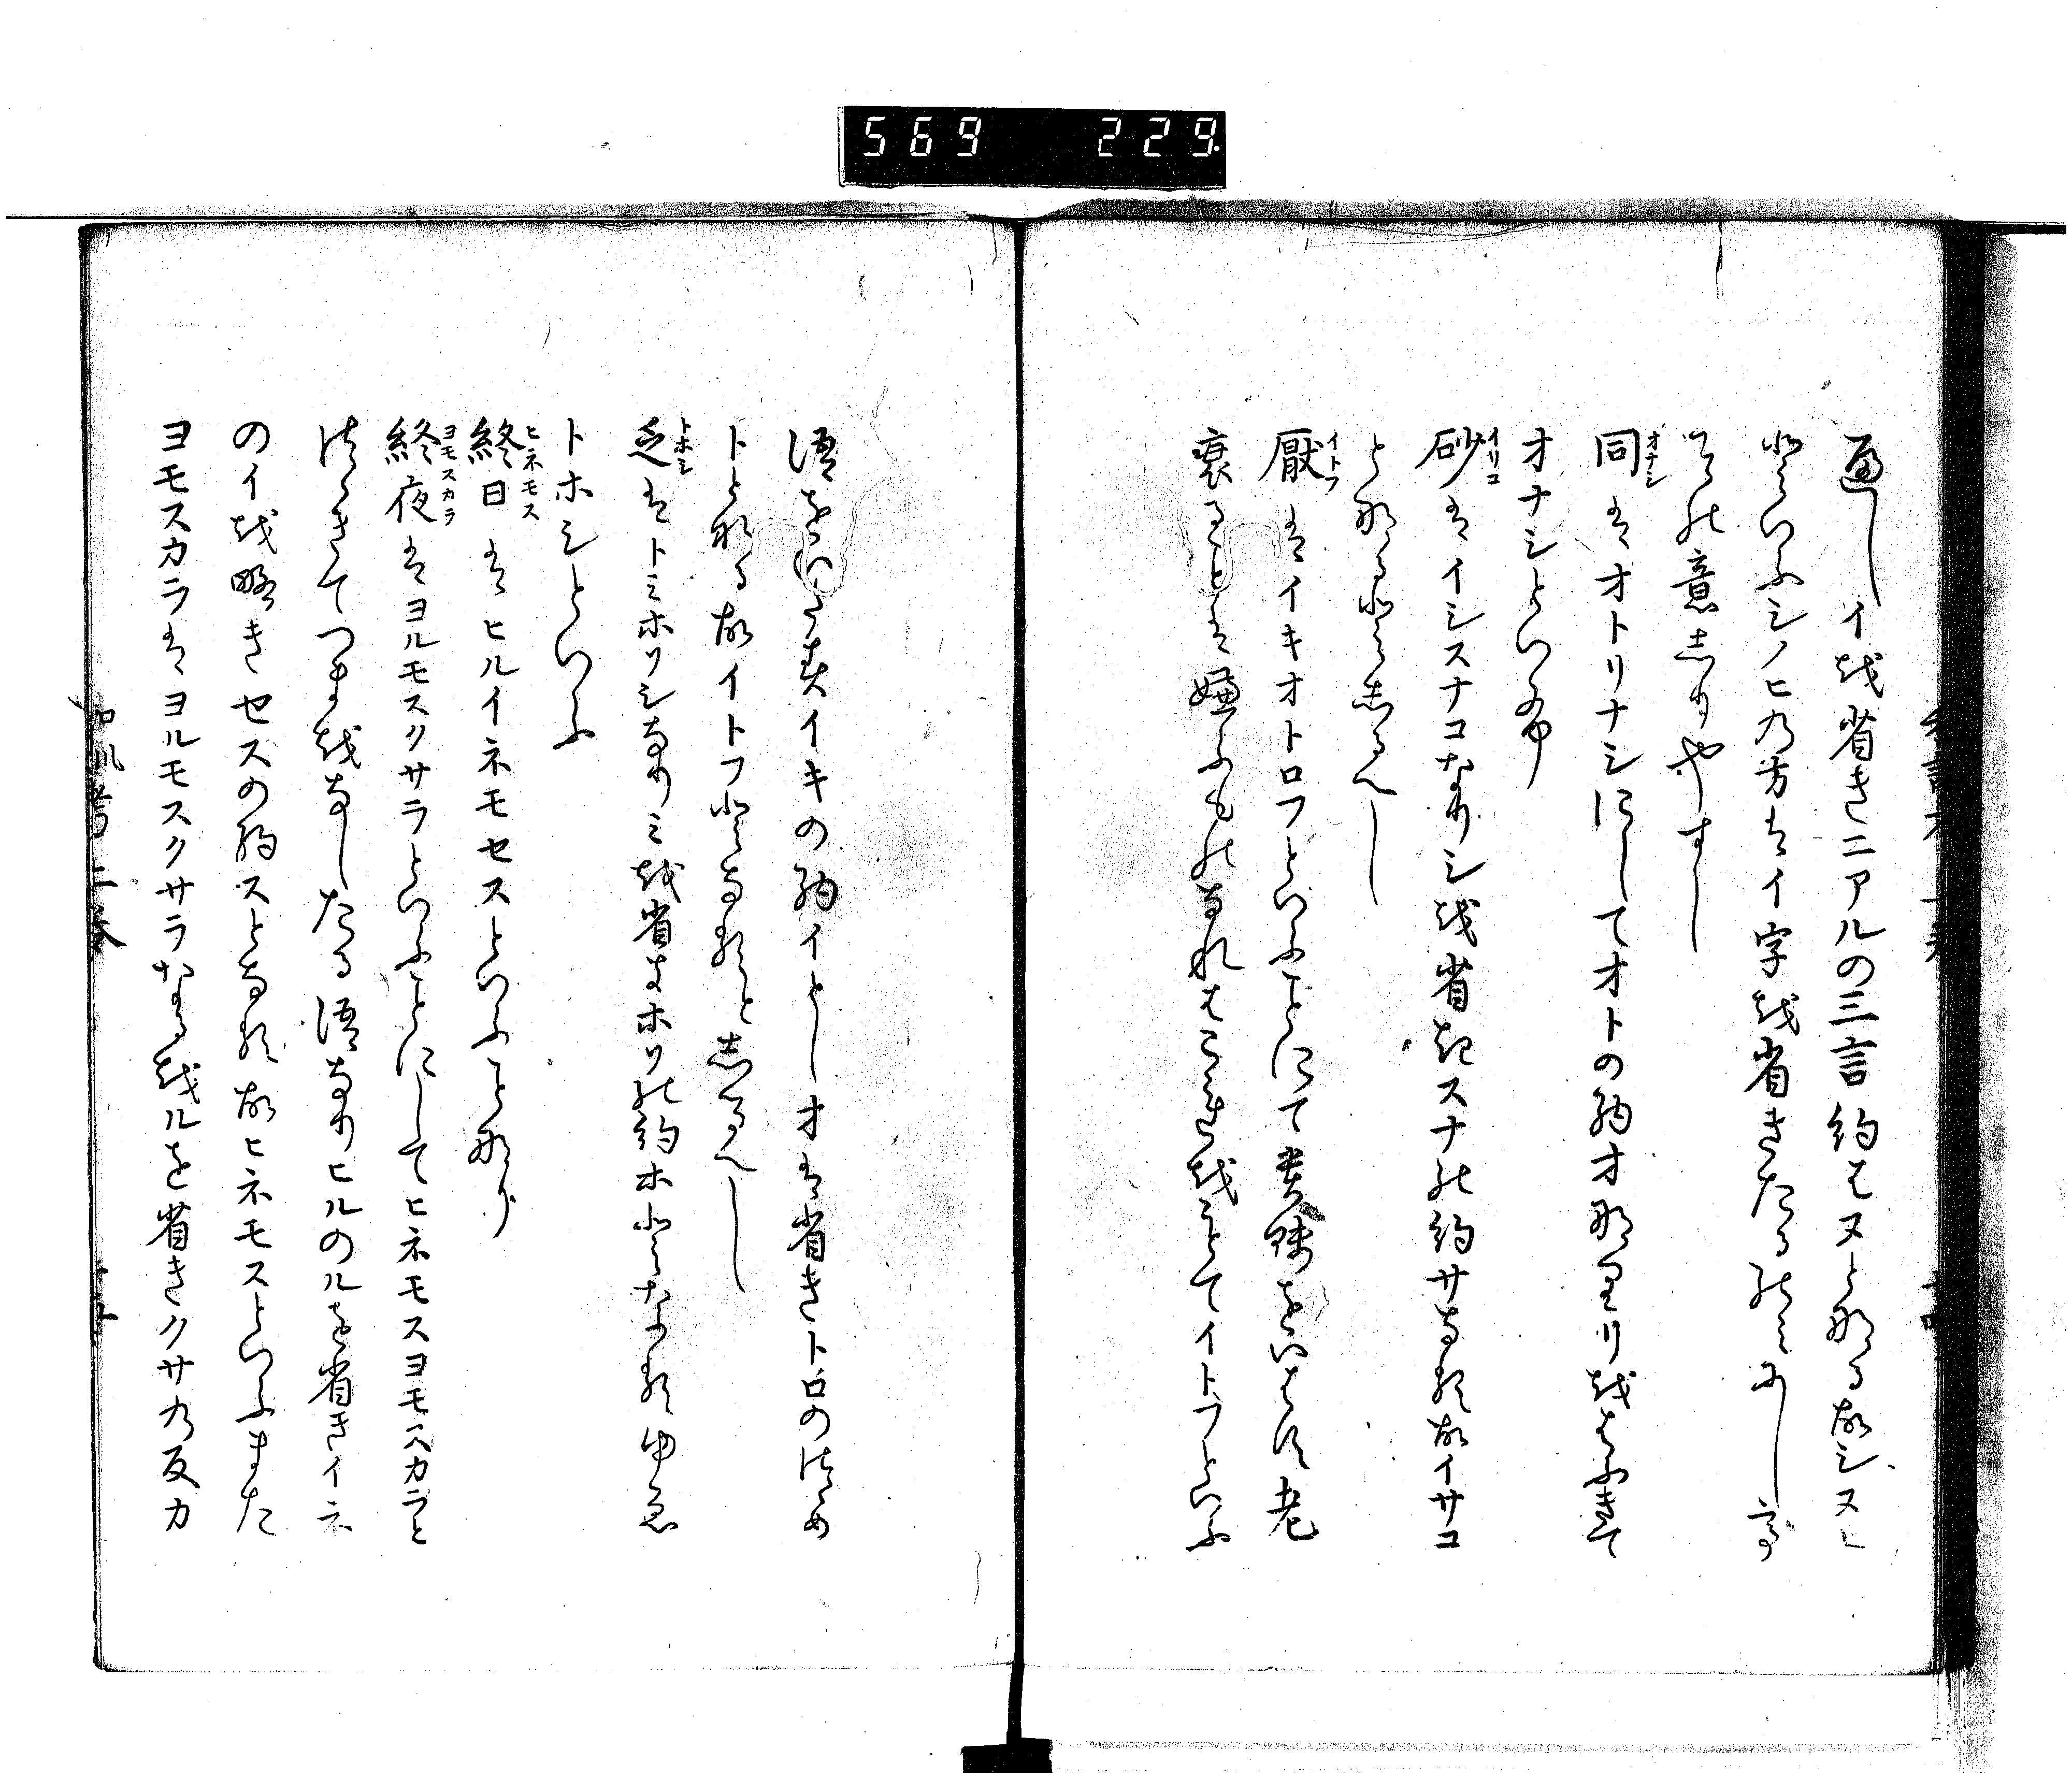 569 229
通しイを省きニアルの三言約はヌと那る故シヌヒ
といふシノヒの方はイ字を省きたるのみ
ての意しりやすし
同はオトリナシにしてオトの約オ那りリをはふきて
オナシといふ
砂はイシスナコなりシを省きスナの約サなる故イサコ
と那るとしるへし
厭はイキオトロフといふことにて老
衰ることは嫌ふものなれはこれをもてイトフといふ
語をイキの約イとしオは省きトロのつゝめ
トと那る故イトフとなるとしるへし
乏はトミホリシなりミを省きホリの約ホとなるゆゑ
トホシといふ
終日はヒルイネモセスといふこと那り
終夜はヨルモスクサラといふことにしてヒネモスヨモスカラと
つゝきてつまをなしたる語なりヒルのルを省きイネ
のイを略きセスの約スとなる故ヒネモスといふまた
ヨモスカラはヨルモスクサラなるをルを省きクサの反カ
オナシ
イサコ
イトフ
トホシ
ヒネモス
ヨモスカラ